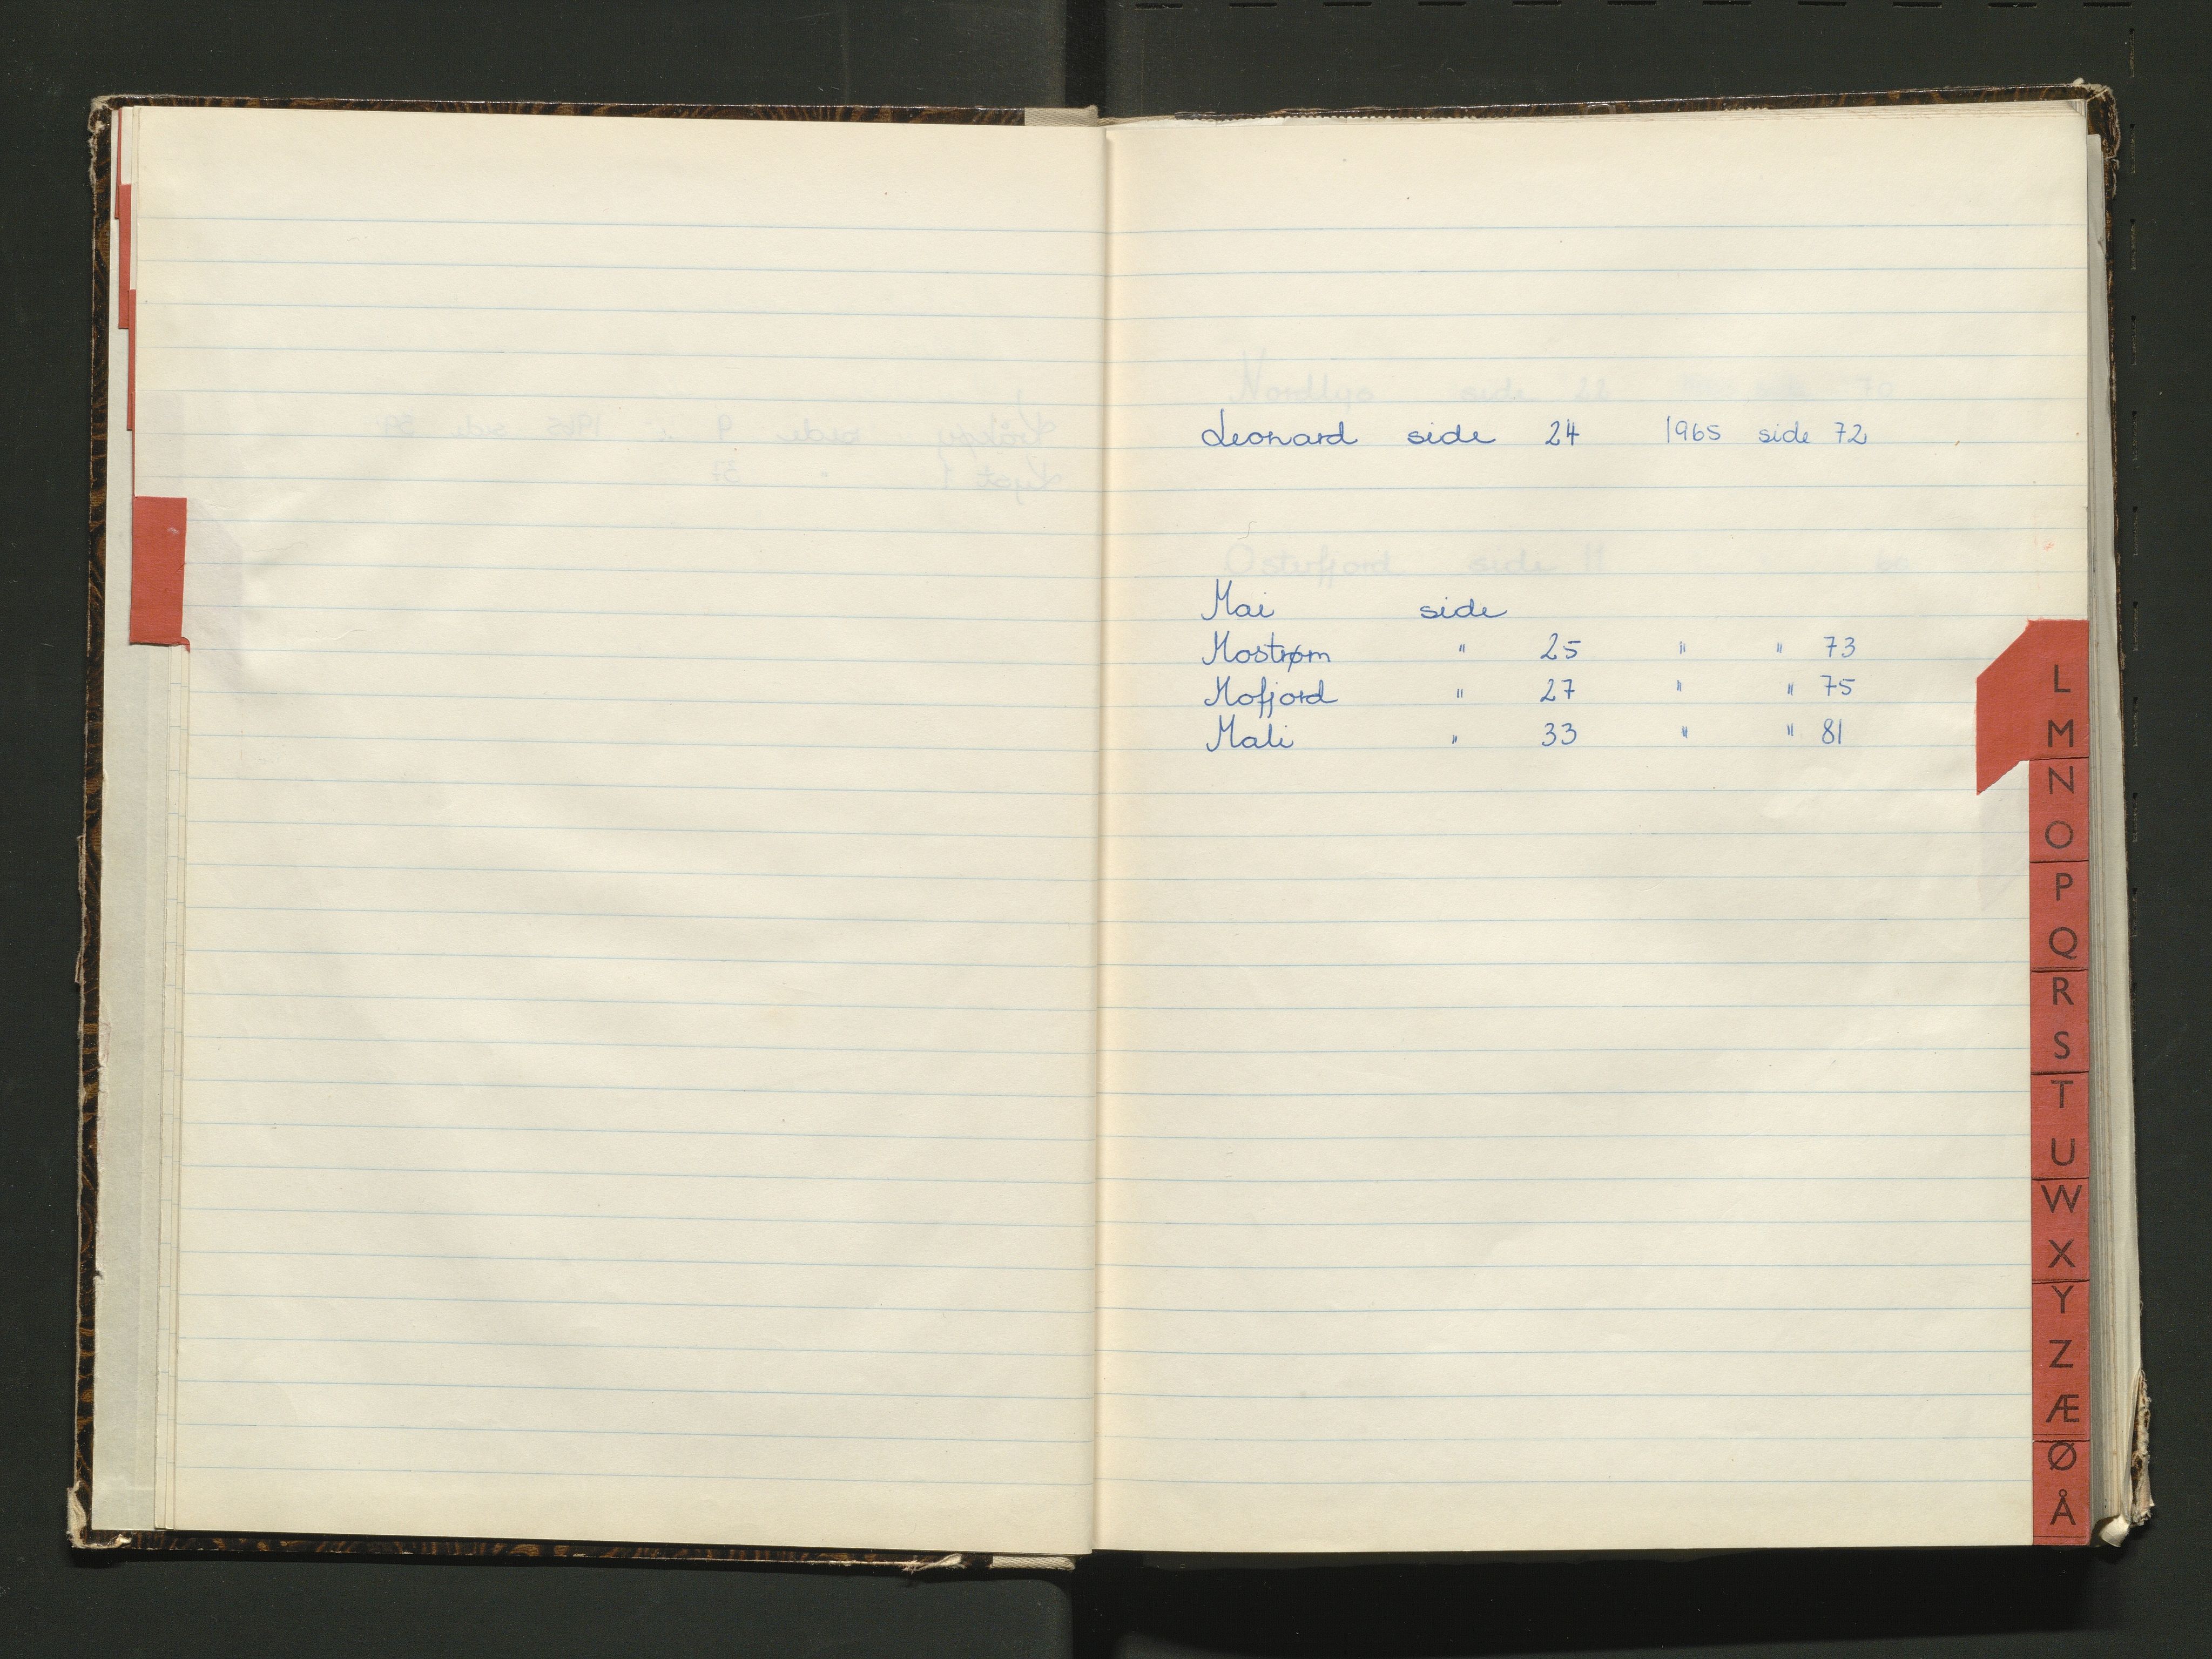 Leonard side 24 1965 side 72
Mai side
Mostrøm " 25 " " 73
Mofjord " 27 " " 75
Mali " 33 " " 81
L
M
N
O
P
Q
R
S
T
U
W
X
Y
Z
Æ
Ø
Å